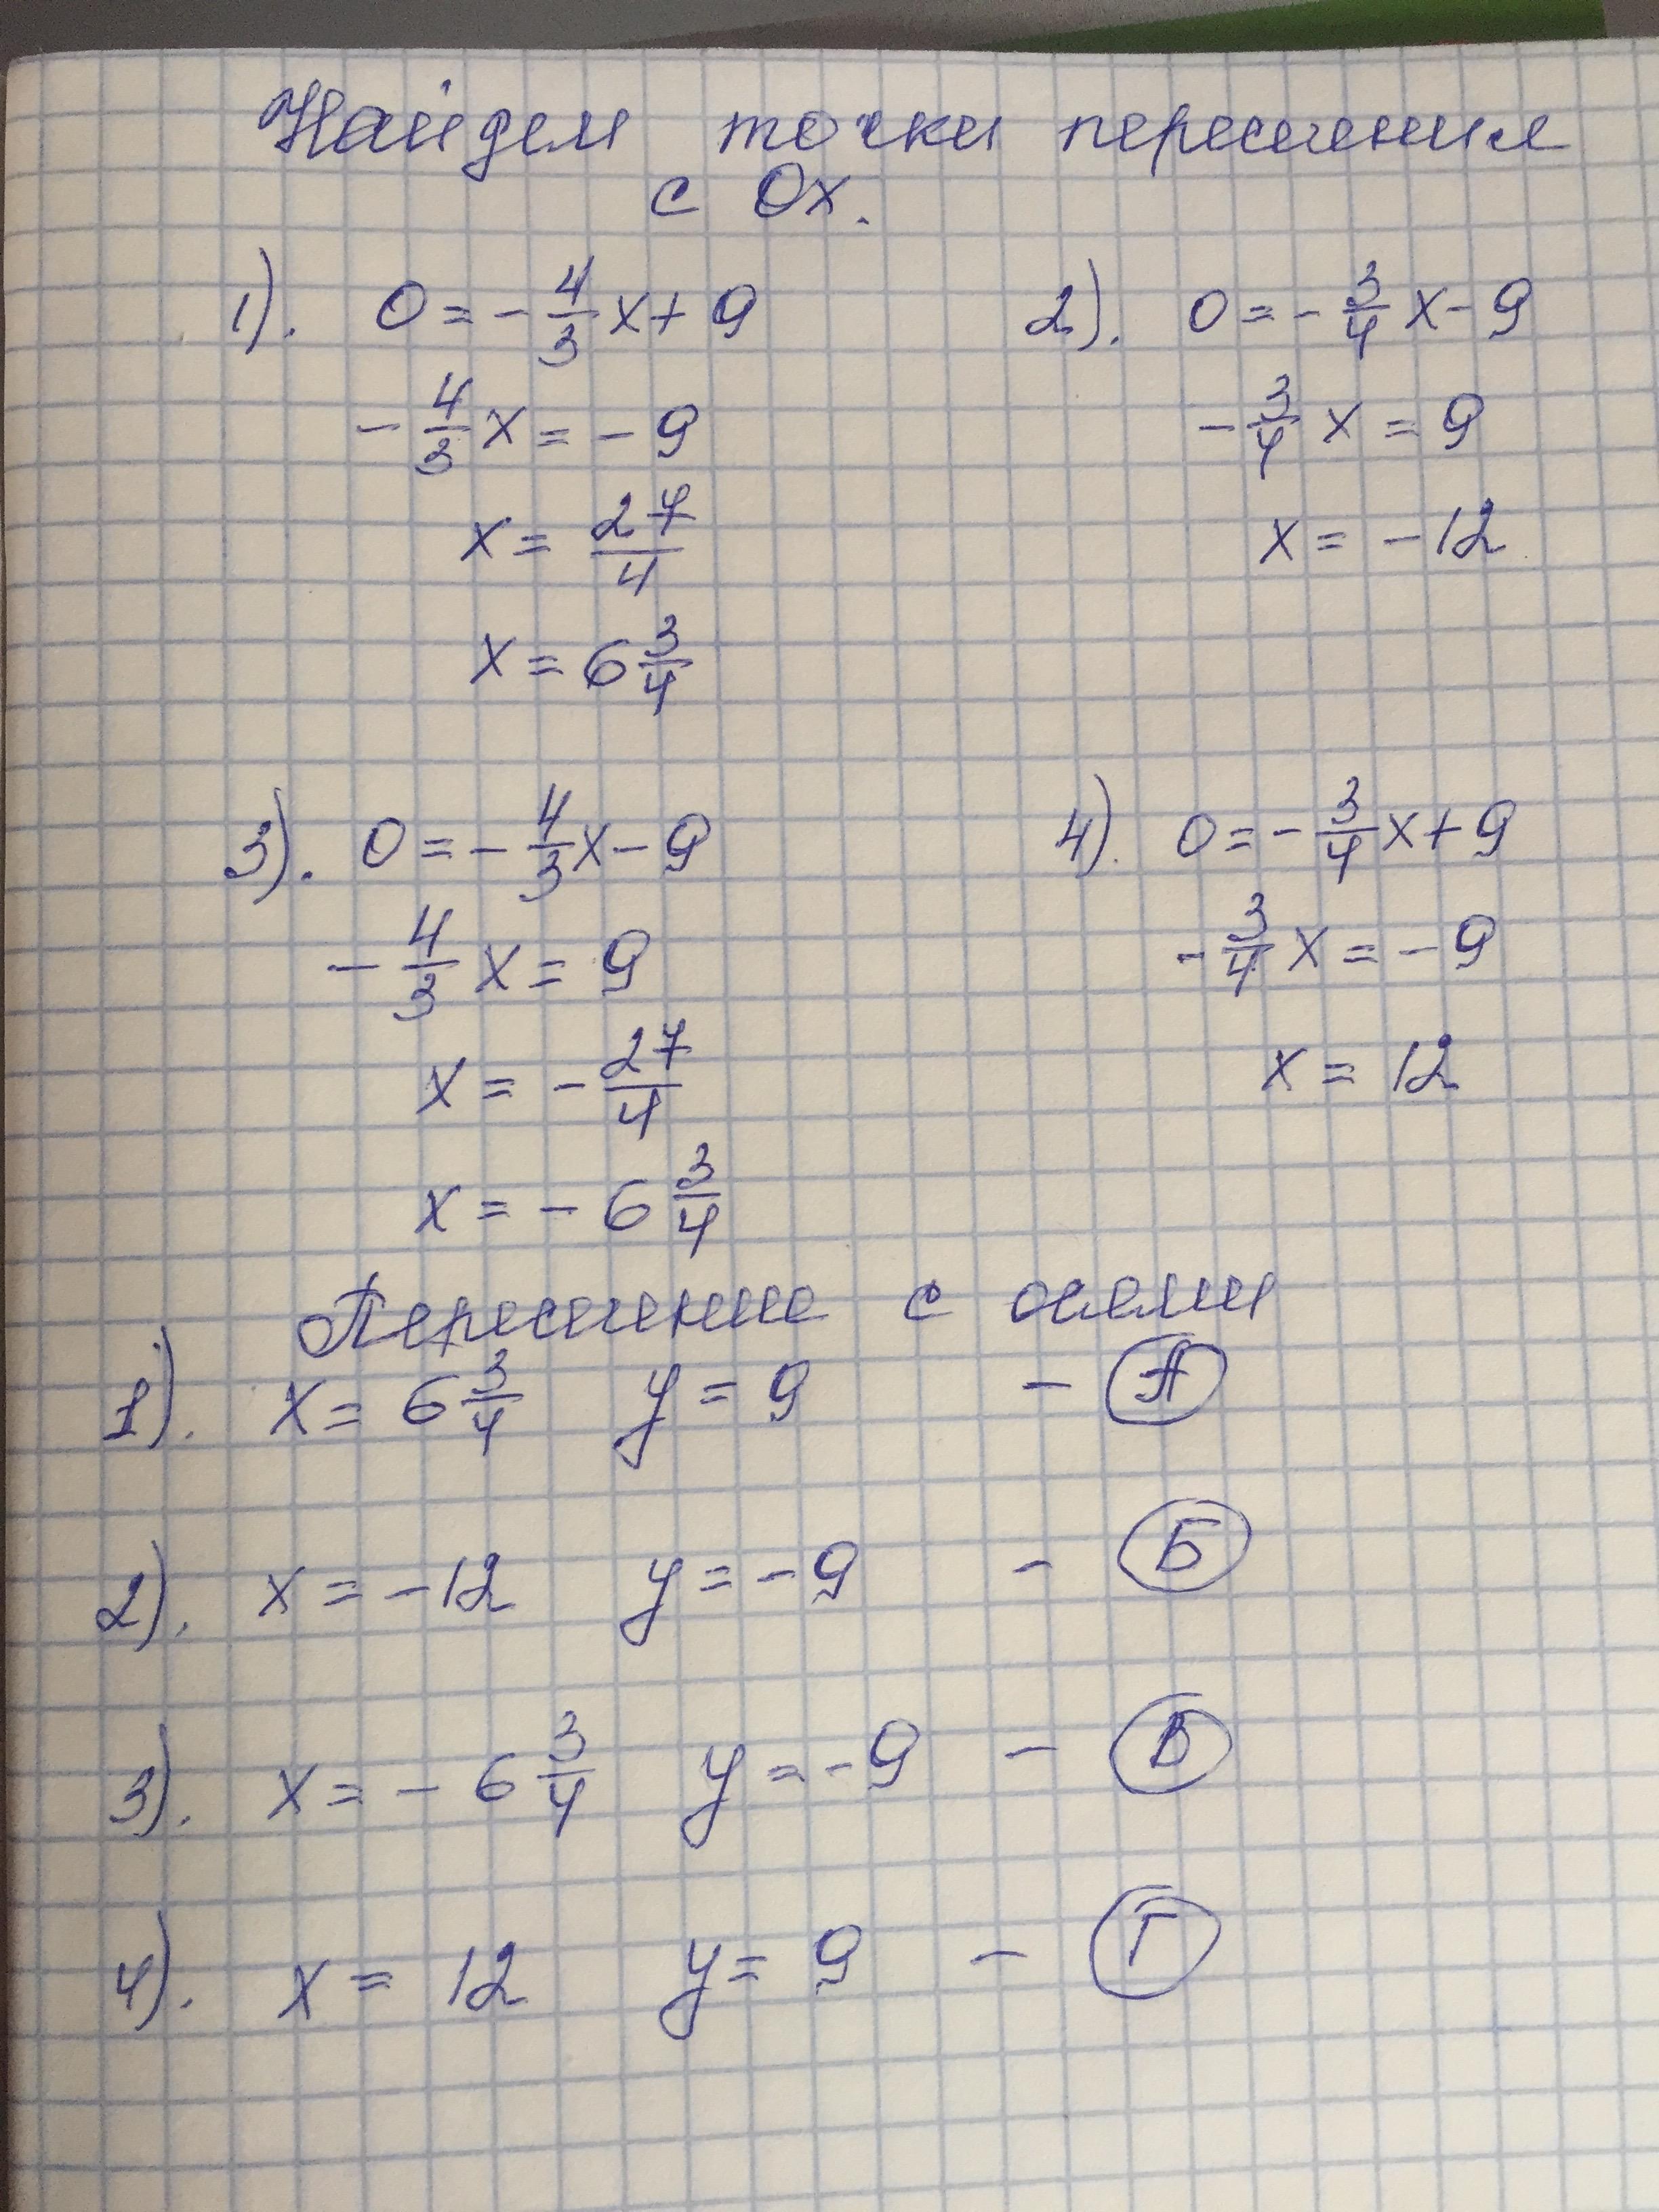 Найдем точки пересечения
с Ох.
1). 0 = - 4/3 x + 9
- 4/3 x = - 9
x = 27/4
x = 6 3/4
2). 0 = - 3/4 x - 9
- 3/4 x = 9
x = - 12
3). 0 = - 4/3 x - 9
- 4/3 x = 9
x = - 27/4
x = - 6 3/4
4). 0 = - 3/4 x + 9
- 3/4 x = - 9
x = 12
Пересечение с осями
1). x = 6 3/4 y = 9 - А
2). x = - 12 y = - 9 - Б
3). x = - 6 3/4 y = - 9 - В
4). x = 12 y = 9 - Г